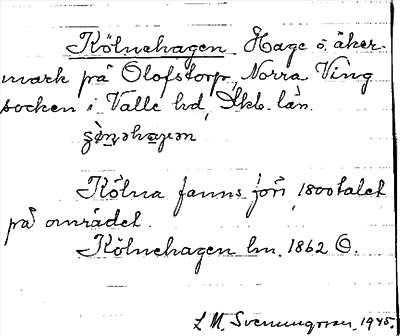 Kölnehagen. Hage o. åker-
mark på Olofstorp, Norra Ving
socken i Valle hd, Skb. län.

Kölna fanns förr i 1800talet
på området.
Kölnehagen lm. 1862 O.
L M Svenungsson, 1945.